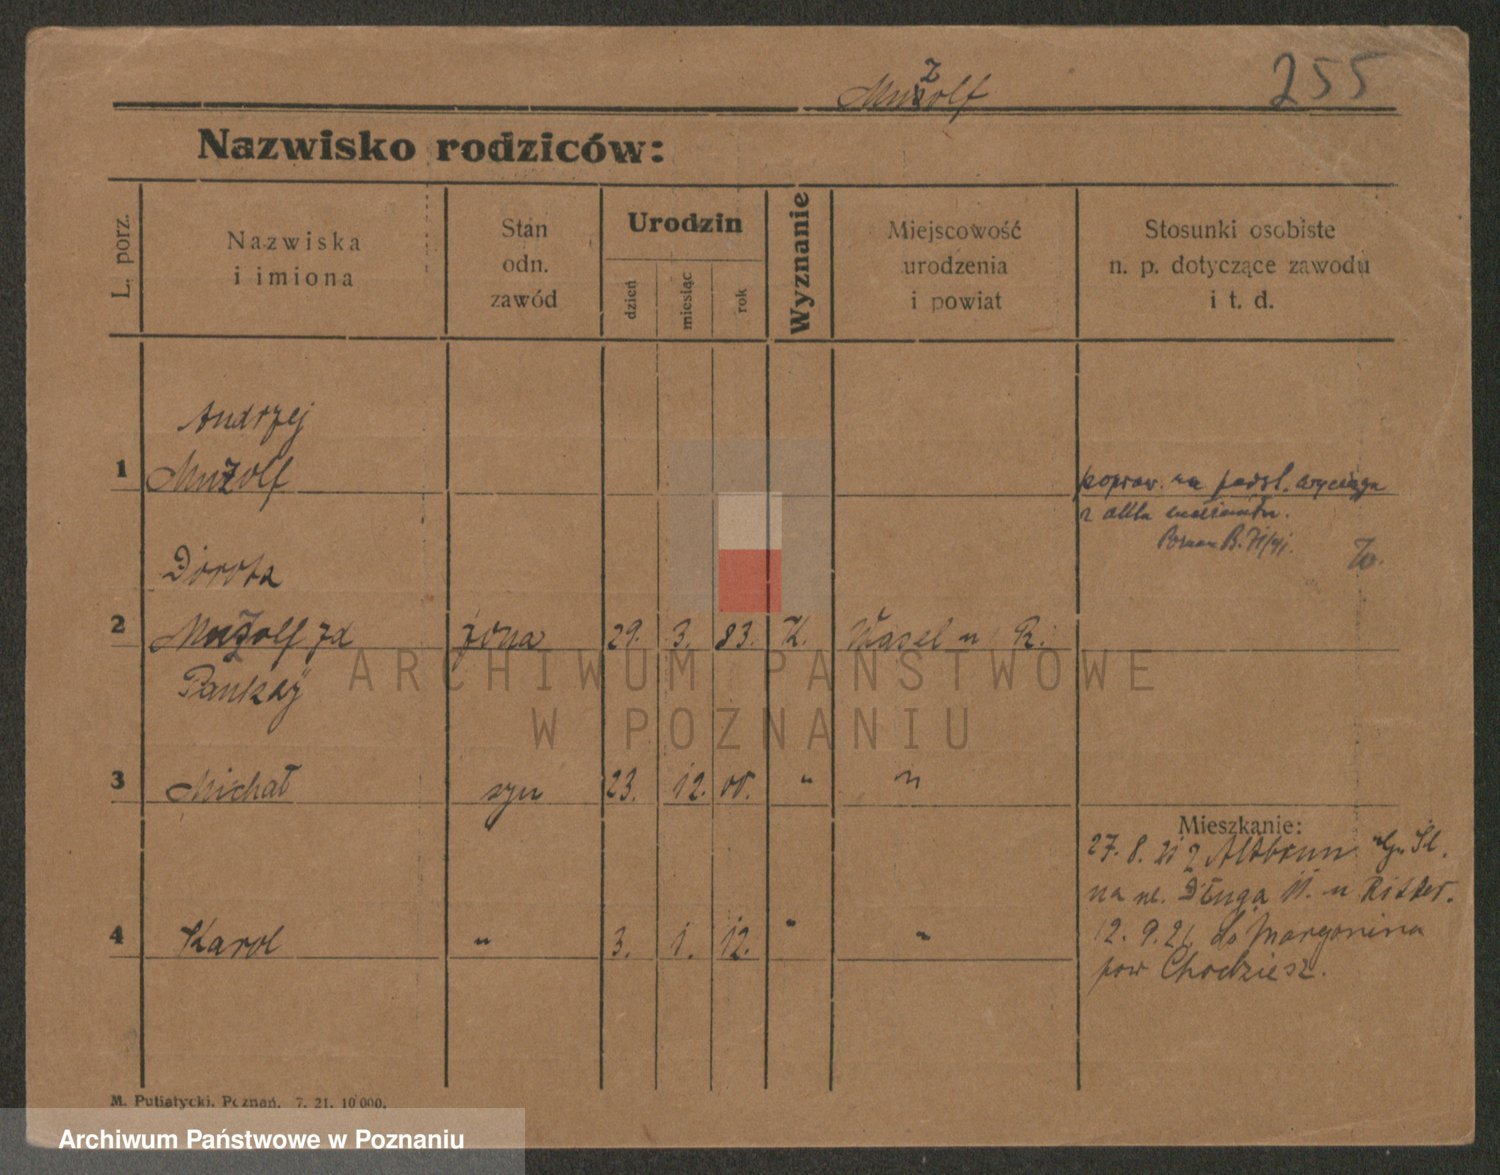 Muzolf
255
Nazwisko rodziców:
L. porz.
Nazwiska
i imiona
Stan
odn.
zawód
Urodzin
dzień
miesiąc
rok
Wyznanie
Miejscowość
urodzenia
i powiat
Stosunki osobiste
n. p. dotyczące zawodu
i t. d.
Andrzej
1 Muzolf
popraw. na podst. wyciągu
z aktu
Dorota
2 Muzolf zd żona 29. 3. 83. K. Wasel n R.
3 Michał syn 23. 12. 00. " "
Mieszkanie:
27. 8. 21 z Altbrun
na ul. Długa 11. u Ritter.
4 Karol " 3. 1. 12. " "
12. 9. 21 do Margonina
pow Chodzież.
M. Putiatycki, Poznań. 7. 21. 10 000.
ARCHIWUM PAŃSTWOWE
W POZNANIU
Archiwum Państwowe w Poznaniu